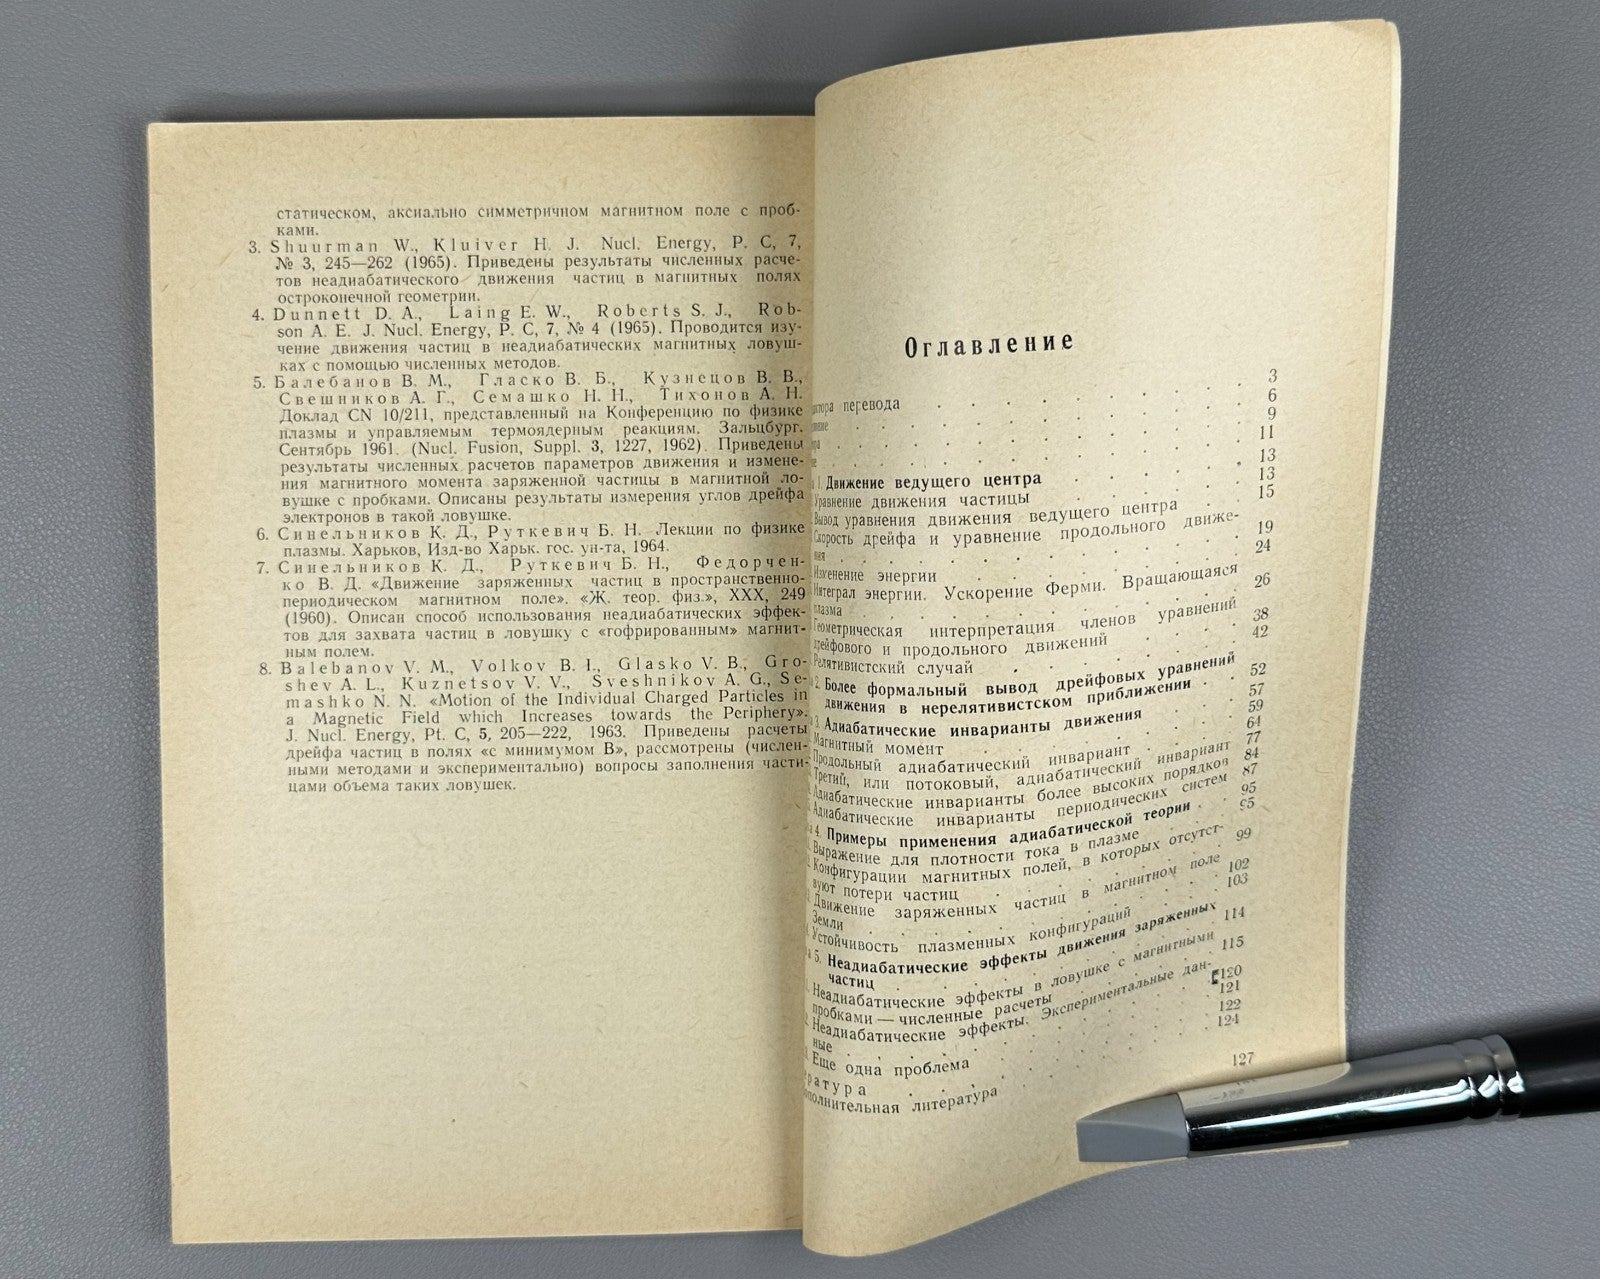 статическом, аксиально симметричном магнитном поле с проб-
ками.
3. Shuurman W., Kluiver H. J. Nucl. Energy, P. C, 7,
№ 3, 245—262 (1965). Приведены результаты численных расче-
тов неадиабатического движения частиц в магнитных полях
остроконечной геометрии.
4. Dunnett D. A., Laing E. W., Roberts S. J., Rob-
son A. E. J. Nucl. Energy, P. C, 7, № 4 (1965). Проводится изу-
чение движения частиц в неадиабатических магнитных ловуш-
ках с помощью численных методов.
5. Балебанов В. М., Гласко В. Б., Кузнецов В. В.,
Свешников А. Г., Семашко Н. Н., Тихонов А. Н.
Доклад CN 10/211, представленный на Конференцию по физике
плазмы и управляемым термоядерным реакциям. Зальцбург.
Сентябрь 1961. (Nucl. Fusion, Suppl. 3, 1227, 1962). Приведены
результаты численных расчетов параметров движения и измене-
ния магнитного момента заряженной частицы в магнитной ло-
вушке с пробками. Описаны результаты измерения углов дрейфа
электронов в такой ловушке.
6. Синельников К. Д., Руткевич Б. Н. Лекции по физике
плазмы. Харьков, Изд-во Харьк. гос. ун-та, 1964.
7. Синельников К. Д., Руткевич Б. Н., Федорчен-
ко В. Д. «Движение заряженных частиц в пространственно-
периодическом магнитном поле». «Ж. теор. физ.», XXX, 249
(1960). Описан способ использования неадиабатических эффек-
тов для захвата частиц в ловушку с «гофрированным» магнит-
ным полем.
8. Balebanov V. M., Volkov B. I., Glasko V. B., Gro-
shev A. L., Kuznetsov V. V., Sveshnikov A. G., Se-
mashko N. N. «Motion of the Individual Charged Particles in
a Magnetic Field which Increases towards the Periphery».
J. Nucl. Energy, Pt. C, 5, 205—222, 1963. Приведены расчеты
дрейфа частиц в полях «с минимумом В», рассмотрены (числен-
ными методами и экспериментально) вопросы заполнения части-
цами объема таких ловушек.
Оглавление
перевода . . . 3
6
9
11
1. Движение ведущего центра . . . 13
Уравнение движения частицы . . . 13
Вывод уравнения движения ведущего центра . . . 15
Скорость дрейфа и уравнение продольного движе-
ния . . . 19
Изменение энергии . . . 24
Интеграл энергии. Ускорение Ферми. Вращающаяся
плазма . . . 26
Геометрическая интерпретация членов уравнений
дрейфового и продольного движений . . . 38
Релятивистский случай . . . 42
2. Более формальный вывод дрейфовых уравнений
движения в нерелятивистском приближении . . . 52
3. Адиабатические инварианты движения . . . 57
Магнитный момент . . . 59
Продольный адиабатический инвариант . . . 64
Третий, или потоковый, адиабатический инвариант 77
Адиабатические инварианты более высоких порядков 84
Адиабатические инварианты периодических систем 87
4. Примеры применения адиабатической теории . . 95
Выражение для плотности тока в плазме . . . 95
Конфигурации магнитных полей, в которых отсутст-
вуют потери частиц . . . 99
Движение заряженных частиц в магнитном поле
Земли . . . 102
Устойчивость плазменных конфигураций . . . 103
5. Неадиабатические эффекты движения заряженных
частиц . . . 114
Неадиабатические эффекты в ловушке с магнитными
пробками — численные расчеты . . . 115
Неадиабатические эффекты. Экспериментальные дан-
ные . . . 120
Еще одна проблема . . . 121
122
литература . . . 124
127